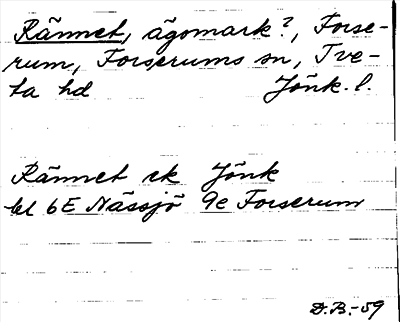 Rännet, ägomark?, Forse-
rum, Forserums sn, Tve-
ta hd Jönk. l.
Rännet ek Jönk
bl 6E Nässjö 9e Forserum
D.B.-59